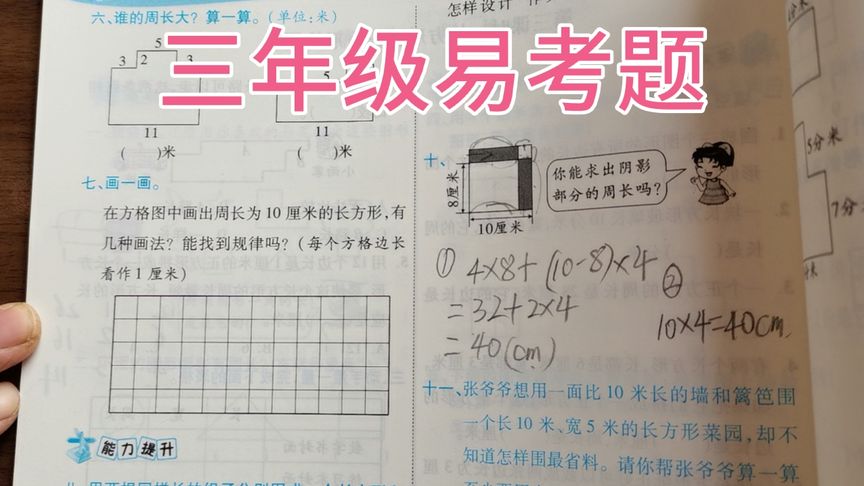 三年级易考题
六、谁的周长大？算一算。(单位:米)
5
3 2 3
11
( )米
5
11
( )米
七、画一画。
在方格图中画出周长为 10 厘米的长方形,有
几种画法？能找到规律吗？(每个方格边长
看作 1 厘米)
能力提升
怎样设计
十、
8厘米
10厘米
你能求出阴影
部分的周长吗？
① 4×8+(10-8)×4
=32+2×4
=40(cm)
②
10×4=40cm.
十一、张爷爷想用一面比 10 米长的墙和篱笆围
一个长 10 米、宽 5 米的长方形菜园,却不
知道怎样围最省料。请你帮张爷爷算一算
5分米
7分